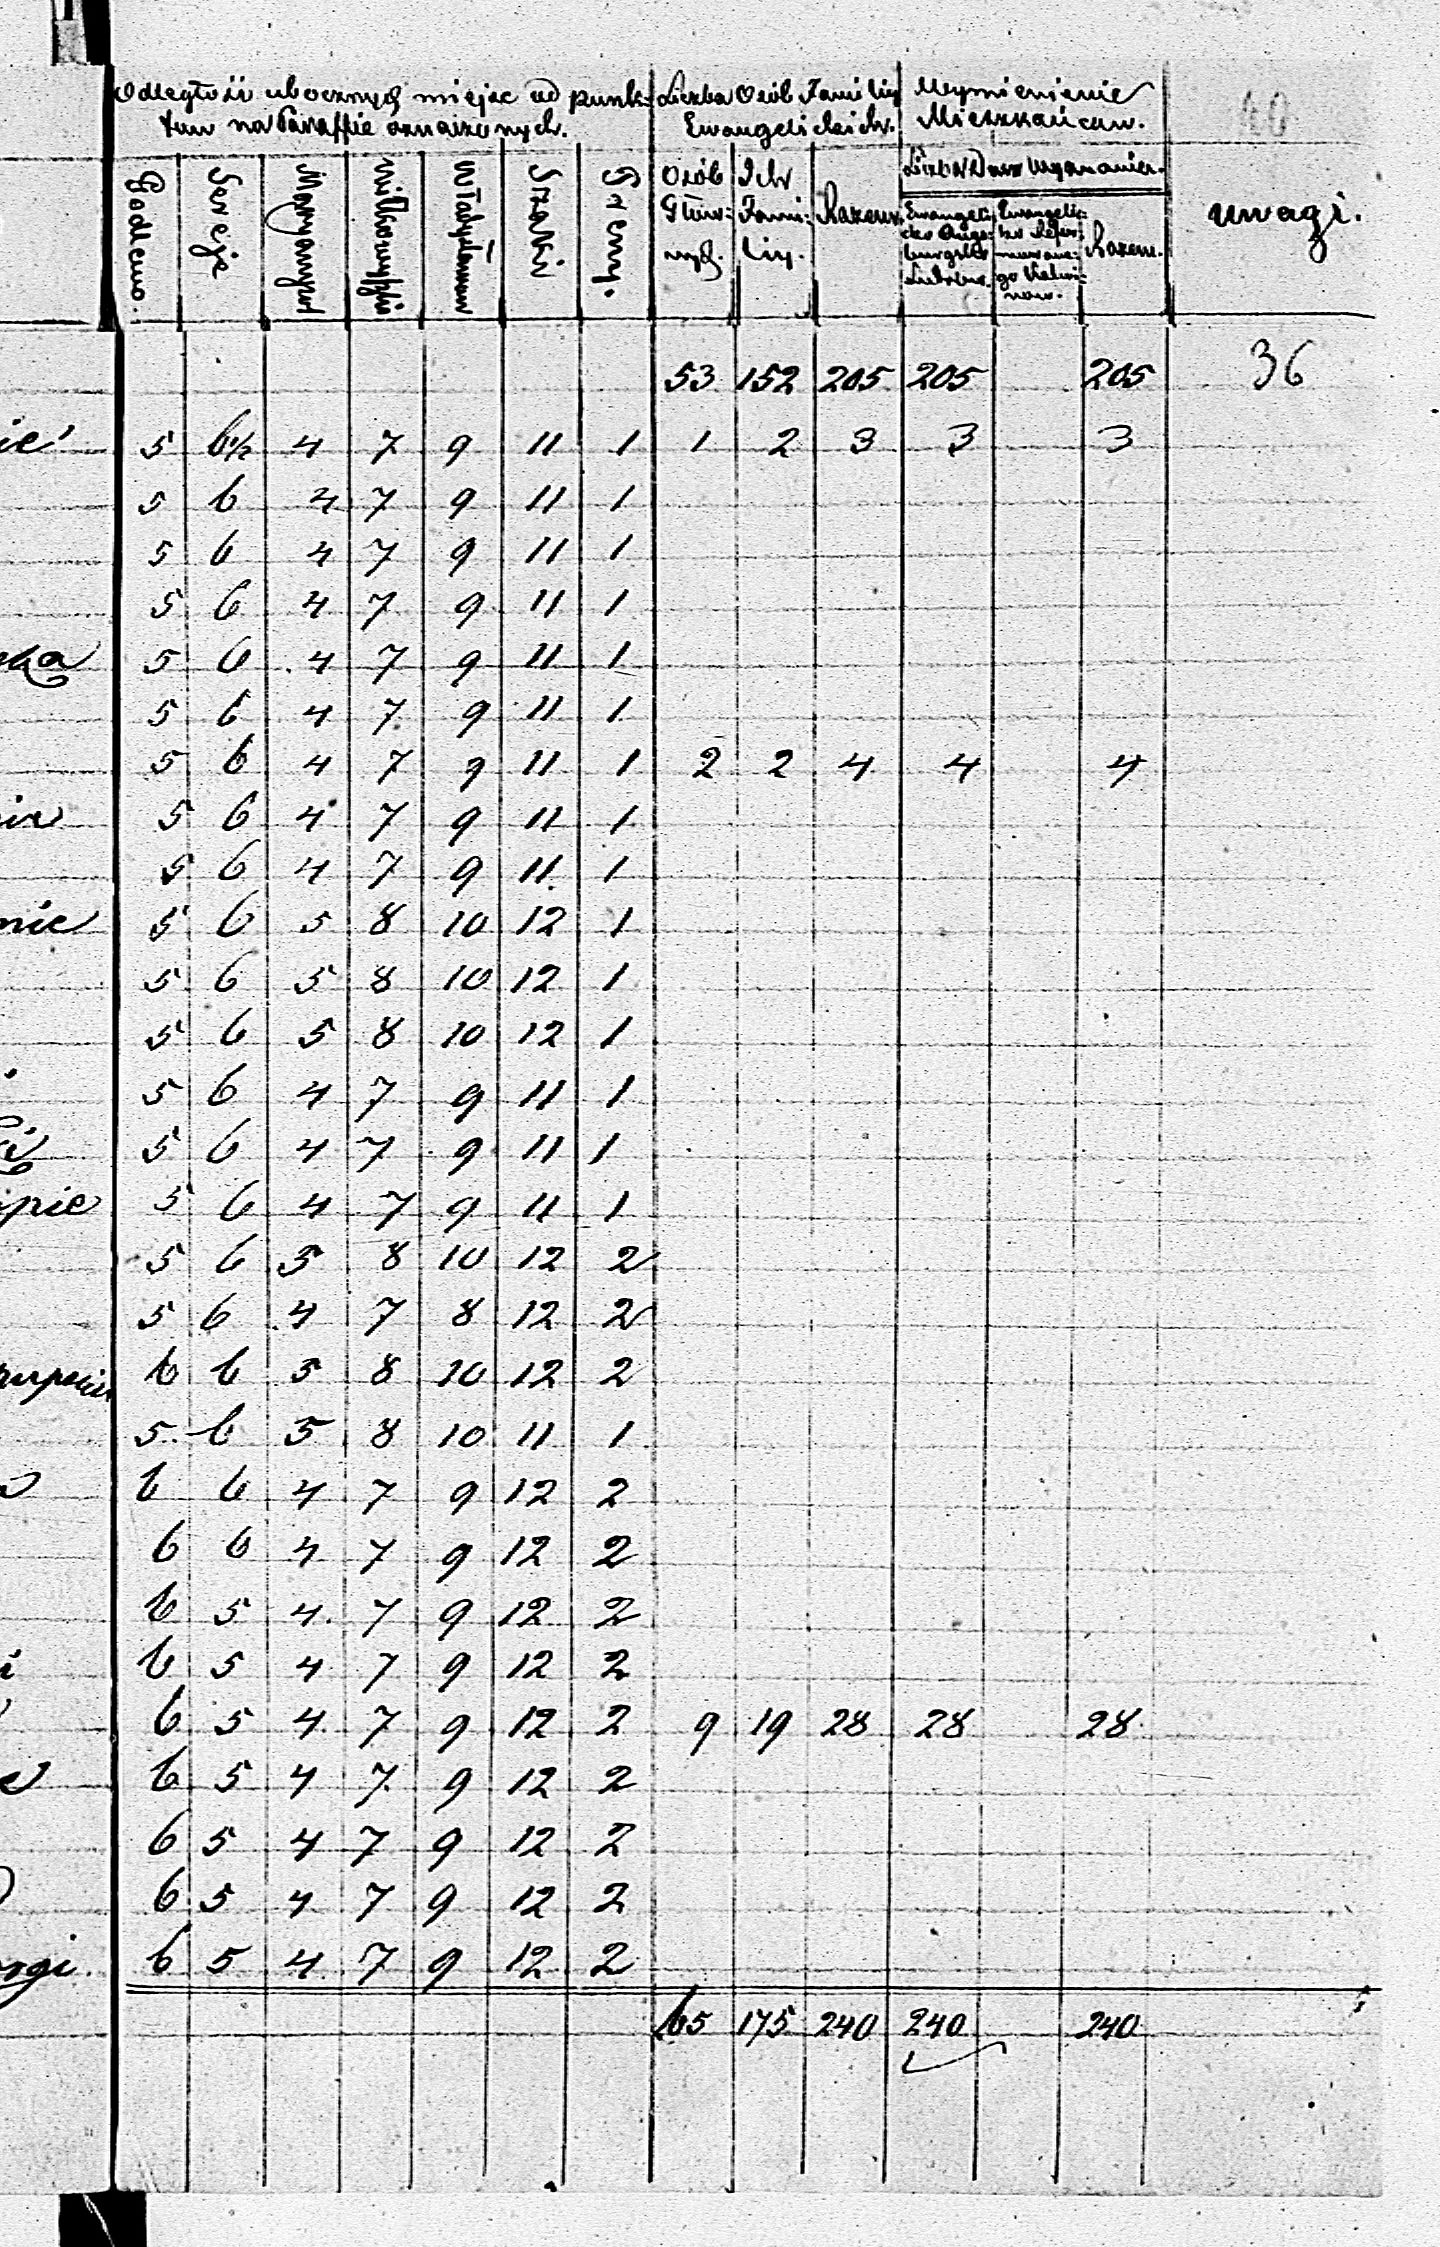 Odległość ubocznych miejsc od punk-
tow na Paraffie oznaczonych.
Liczba Osób Familiy
Ewangelickich.
Wymienienie
Mieszkańcow.
40
Godlewo.
Sereje
Maryampol
Wiłkowyszki
Władysławow
Szaki
Prenny.
Osób
Głów-
nych.
Ich
Fami-
liy.
Razem
Liczba Dusz Wyznania.
Ewangelic-
Razem.
uwagi.
53 152 205 205 205 36
ie 5 6½ 4 7 9 11 1 1 2 3 3 3
5 6 4 7 9 11 1
5 6 4 7 9 11 1
5 6 4 7 9 11 1
ka 5 6 4 7 9 11 1
5 6 4 7 9 11 1
5 6 4 7 9 11 1 2 2 4 4 4
5 6 4 7 9 11 1
5 6 4 7 9 11 1
nie 5 6 5 8 10 12 1
5 6 5 8 10 12 1
5 6 5 8 10 12 1
5 6 4 7 9 11 1
5 6 4 7 9 11 1
pie 5 6 4 7 9 11 1
5 6 5 8 10 12 2
5 6 4 7 8 12 2
6 6 5 8 10 12 2
5 6 5 8 10 11 1
6 6 4 7 9 12 2
6 6 4 7 9 12 2
6 5 4 7 9 12 2
i 6 5 4 7 9 12 2
6 5 4 7 9 12 2 9 19 28 28 28
6 5 4 7 9 12 2
6 5 4 7 9 12 2
6 5 4 7 9 12 2
rgi 6 5 4 7 9 12 2
65 175 240 240 240